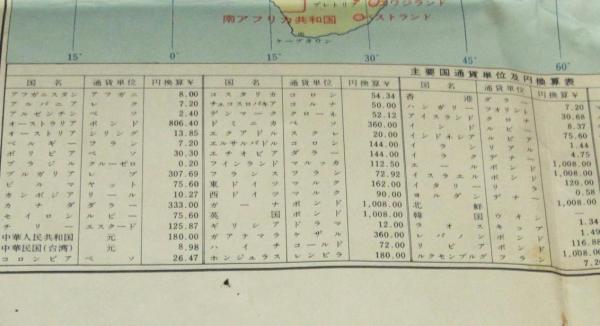 プレトリア
スワジランド
南アフリカ共和国
バストランド
ケープタウン
15° 0° 15° 30° 45° 60°
主要国通貨単位及円換算表
国名 通貨単位 円換算¥
アフガニスタン アフガニ 8.00
アルバニア レク 7.20
アルゼンチン ペソ 2.40
オーストラリア ポンド 806.40
オーストリア シリング 13.85
ベルギー フラン 7.20
ボリビア ペソ 30.30
ブラジル クルーゼロ 0.20
ブルガリア レブ 307.69
ビルマ ヤット 75.60
カンボジア リール 10.27
カナダ ダラー 333.00
セイロン ルピー 75.60
チリー エスクード 125.87
中華人民共和国 元 180.00
中華民国(台湾) 元 8.98
コロンビア ペソ 26.47
国名 通貨単位 円換算¥
コスタリカ コロン 54.34
チェコスロバキア コルナ 50.00
デンマーク クローネ 52.12
ドミニカ ペソ 360.00
エクアドル スクレ 20.00
エルサルバドル コロン 144.00
エチオピア ダラー 144.00
フィンランド マルッカ 112.50
フランス フラン 72.92
東ドイツ マルク 162.00
西ドイツ マルク 90.00
ガーナ ポンド 1,008.00
英国 ポンド 1,008.00
ギリシア ドラマ 12.00
ガアテマラ ケザル 360.00
ハイチ コールド 72.00
ホンジュラス レンピラ 180.00
国名 通貨単位 円換算¥
香港 ダラー 7.20
ハンガリー フォリント 30.68
アイスランド クローナ 8.37
インド ルピー 75.60
インドネシア ルピア 1.44
イラン リアル 4.75
イラク 1,008.00
イスラエル ポンド 120.00
イタリー リラ 0.58
ヨルダン 1,008.00
北鮮
韓国 ウオン
ラオス キップ
レバノン ポンド
リビア ポンド
ルクセンブルグ フラン